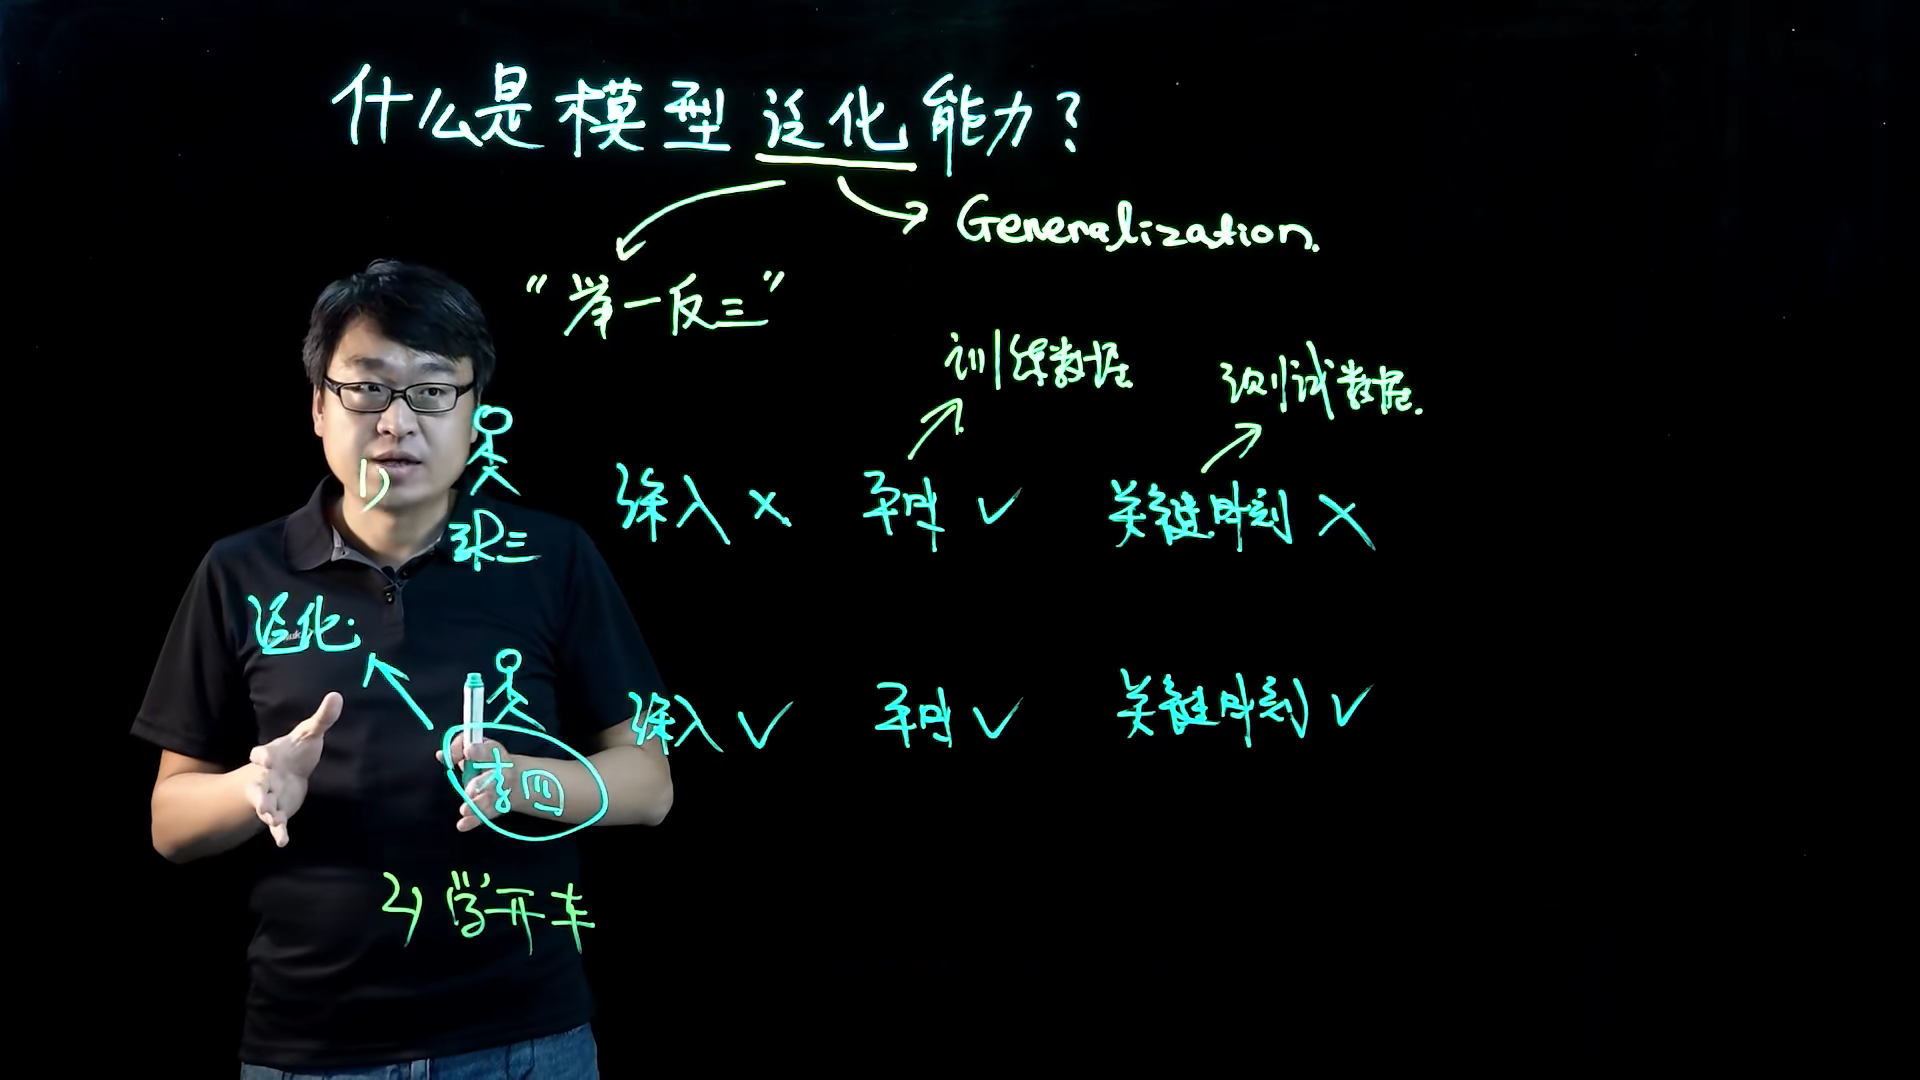 什么是模型泛化能力?
Generalization.
"举一反三"
训练数据
测试数据.
1)
张三
深入 × 平时 ✓ 关键时刻 ×
泛化.
深入 ✓ 平时 ✓ 关键时刻 ✓
李四
2) 学开车